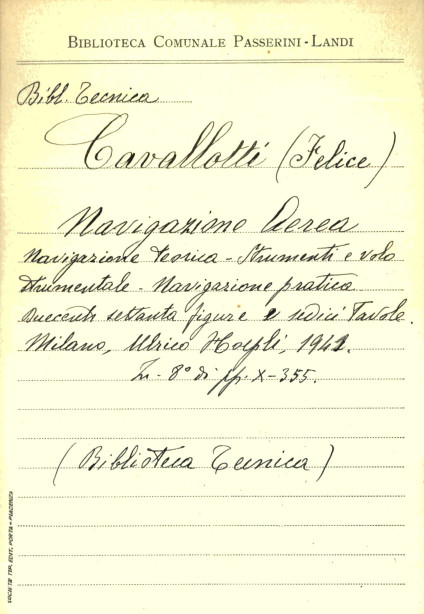 BIBLIOTECA COMUNALE PASSERINI-LANDI
Bibl. Tecnica
Cavallotti (Felice)
Navigazione Aerea
Navigazione teorica - Strumenti e volo
strumentale - Navigazione pratica
Duecento settanta figure e sedici Tavole.
Milano, Ulrico Hoepli, 1941.
In-8° di pp. X-355.
(Biblioteca Tecnica)
SOCIETÀ TIP. EDIT. PORTA - PIACENZA